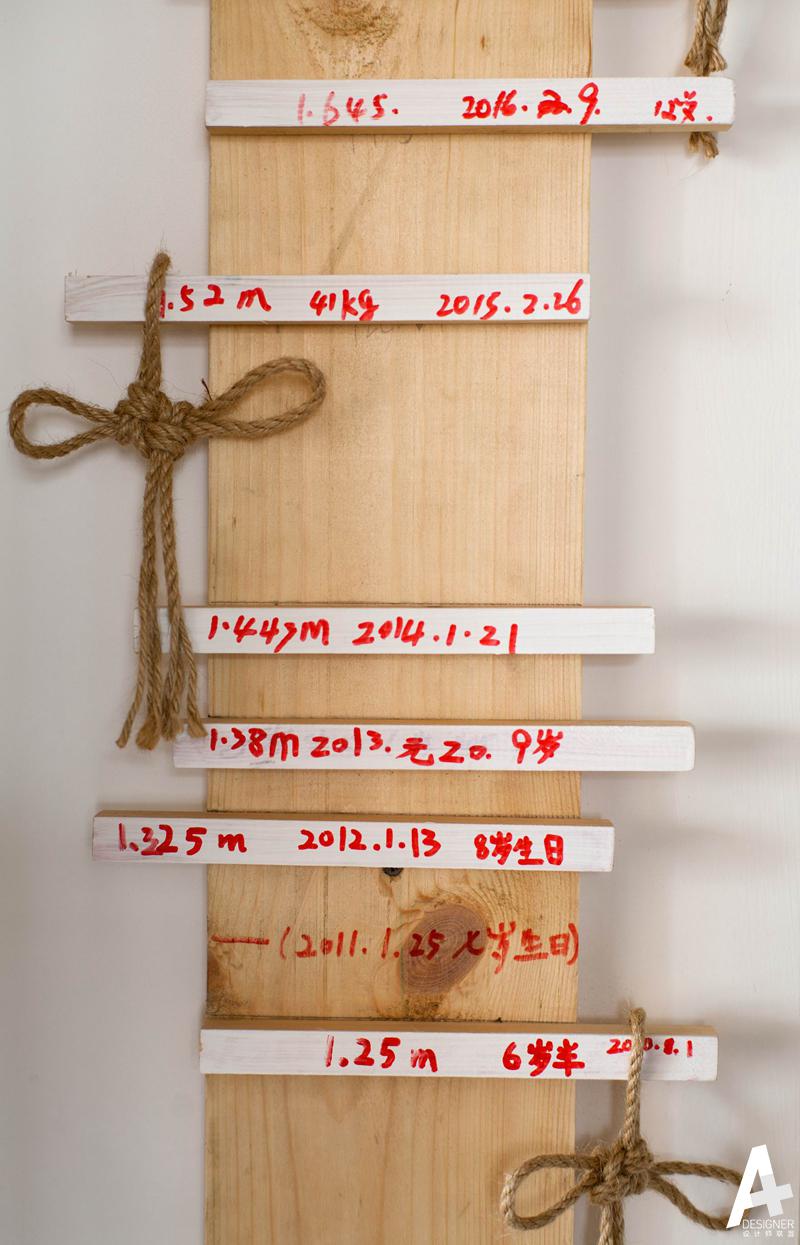 1.645. 2016.2.9. 12岁.
1.52m 41kg 2015.2.26
1.447m 2014.1.21
1.38m 2013.元20. 9岁
1.325m 2012.1.13 8岁生日
—(2011.1.25 七岁生日)
1.25m 6岁半 2010.8.1
A+
DESIGNER
设计师联盟